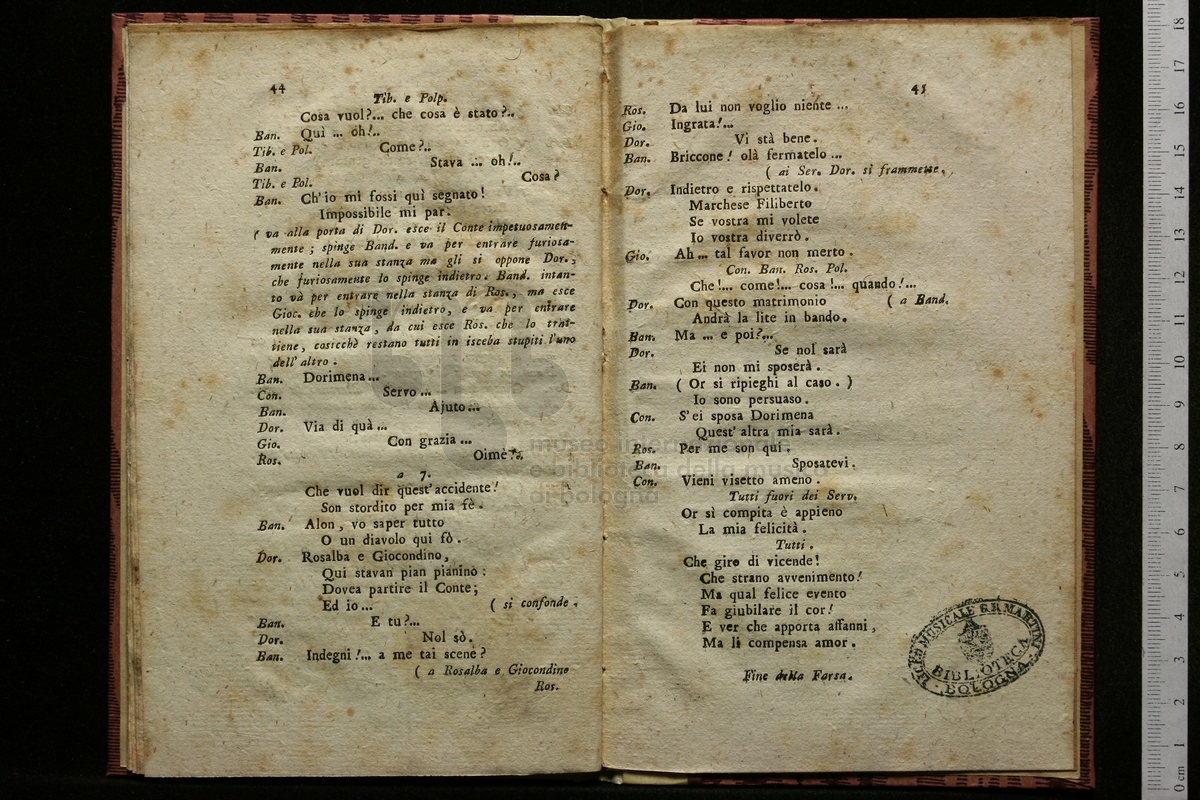 44
Tib. e Polp.
Cosa vuol?... che cosa è stato?..
Ban. Quì ... oh!..
Tib. e Pol. Come?..
Ban. Stava ... oh!..
Tib. e Pol. Cosa?
Ban. Ch'io mi fossi quì segnato!
Impossibile mi par.
( va alla porta di Dor. esce il Conte impetuosamen-
mente; spinge Band. e va per entrare furiosa-
mente nella sua stanza ma gli si oppone Dor.,
che furiosamente lo spinge indietro. Band. intan-
to và per entrare nella stanza di Ros., ma esce
Gioc. che lo spinge indietro, e va per entrare
nella sua stanza, da cui esce Ros. che lo trat-
tiene, cosicchè restano tutti in isceba stupiti l'uno
dell'altro.
Ban. Dorimena...
Con. Servo...
Ban. Ajuto...
Dor. Via di quà...
Gio. Con grazia...
Ros. Oimè?..
a 7.
Che vuol dir quest'accidente!
Son stordito per mia fè.
Ban. Alon, vo saper tutto
O un diavolo qui fò.
Dor. Rosalba e Giocondino,
Qui stavan pian pianino:
Dovea partire il Conte;
Ed io... ( si confonde.
Ban. E tu?...
Dor. Nol sò.
Ban. Indegni!... a me tai scene?
( a Rosalba e Giocondino
Ros.
45
Ros. Da lui non voglio niente ...
Gio. Ingrata!...
Dor. Vi stà bene.
Ban. Briccone! olà fermatelo ...
( ai Ser. Dor. si frammette.
Dor. Indietro e rispettatelo.
Marchese Filiberto
Se vostra mi volete
Io vostra diverrò.
Gio. Ah... tal favor non merto.
Con. Ban. Ros. Pol.
Che!... come!... cosa!... quando!...
Dor. Con questo matrimonio ( a Band.
Andrà la lite in bando.
Ban. Ma ... e poi?...
Dor. Se nol sarà
Ei non mi sposerà.
Ban. ( Or si ripieghi al caso. )
Io sono persuaso.
Con. S'ei sposa Dorimena
Quest'altra mia sarà.
Ros. Per me son qui.
Ban. Sposatevi.
Con. Vieni visetto ameno.
Tutti fuori dei Serv.
Or sì compita è appieno
La mia felicità.
Tutti.
Che giro di vicende!
Che strano avvenimento!
Ma qual felice evento
Fa giubilare il cor!
E ver che apporta affanni,
Ma li compensa amor.
Fine della Farsa.
LICEO MUSICALE G.B. MARTINI
BIBLIOTECA
BOLOGNA
museo internazionale
e biblioteca della musica
di bologna
0 cm 1 2 3 4 5 6 7 8 9 10 11 12 13 14 15 16 17 18